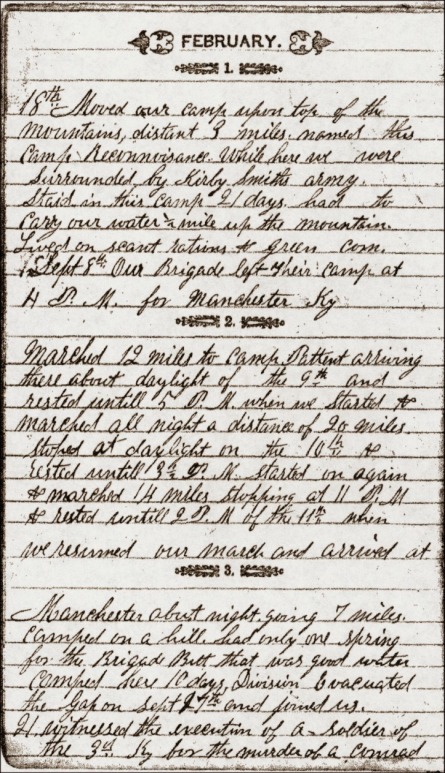 FEBRUARY.
1.
18th Moved our camp upon top of the
mountains, distant 3 miles. named this
Camp Reconnoisance. While here we were
surrounded by Kirby Smiths army.
Staid in this Camp 21 days. had to
carry our water mile up the mountain.
Lived on scant rations & green corn.
Sept 8th Our Brigade left their camp at
4 P.M. for Manchester Ky
2.
Marched 12 miles to Camp Pattent arriving
there about daylight of the 9th and
rested untill 5 P.M. when we started &
marched all night a distance of 20 miles
stoped at daylight on the 10th &
rested untill 3 P.M. started on again
& marched 14 miles stopping at 11 P.M
& rested untill 2 P.M of the 11th when
we resumed our march and arrived at
3.
Manchester about night, going 7 miles.
Camped on a hill. had only one spring
for the Brigade Butt that was good water
Camped here 10 days, Division Evacuated
the Gap on Sept 17th and joined us.
21. witnessed the execution of a soldier of
the 3rd Ky for the murder of a comrad